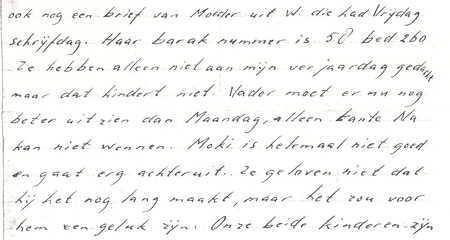 ook nog een brief van Moeder uit W. die had Vrijdag
schrijfdag. Haar barak nummer is 58 bed 260
Ze hebben alleen niet aan mijn verjaardag gedacht
maar dat hindert niet. Vader moet er nu nog
beter uit zien dan Maandag, alleen tante Na
kan niet wennen. Moki is helemaal niet goed
en gaat erg achteruit. Ze geloven niet dat
hij het nog lang maakt, maar het zou voor
hem een geluk zijn. Onze beide kinderen zijn